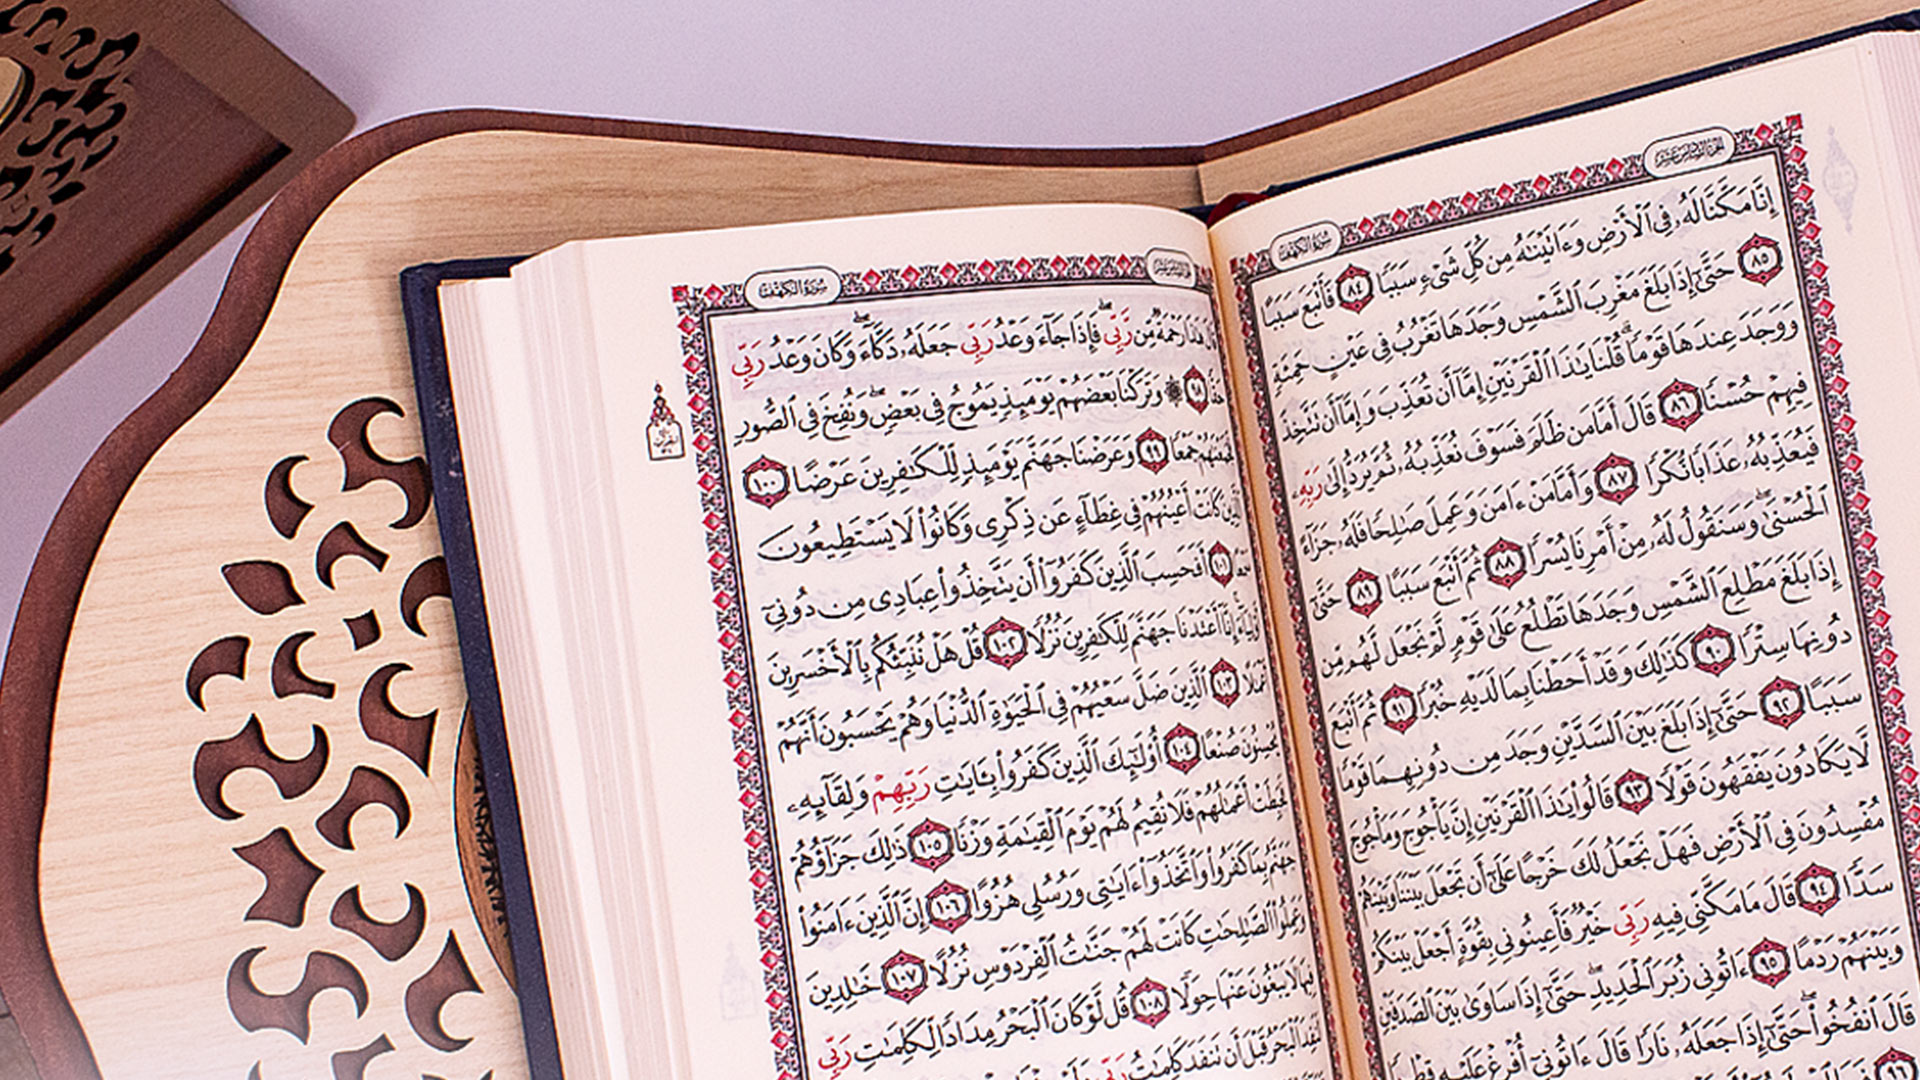 الجزء السادس عشر
سورة الكهف
إِنَّا مَكَّنَّا لَهُۥ فِى ٱلْأَرْضِ وَءَاتَيْنَٰهُ مِن كُلِّ شَىْءٍ سَبَبًا ٨٤ فَأَتْبَعَ سَبَبًا
٨٥ حَتَّىٰٓ إِذَا بَلَغَ مَغْرِبَ ٱلشَّمْسِ وَجَدَهَا تَغْرُبُ فِى عَيْنٍ حَمِئَةٍ
وَوَجَدَ عِندَهَا قَوْمًا ۗ قُلْنَا يَٰذَا ٱلْقَرْنَيْنِ إِمَّآ أَن تُعَذِّبَ وَإِمَّآ أَن تَتَّخِذَ
فِيهِمْ حُسْنًا ٨٦ قَالَ أَمَّا مَن ظَلَمَ فَسَوْفَ نُعَذِّبُهُۥ ثُمَّ يُرَدُّ إِلَىٰ رَبِّهِۦ
فَيُعَذِّبُهُۥ عَذَابًا نُّكْرًا ٨٧ وَأَمَّا مَنْ ءَامَنَ وَعَمِلَ صَٰلِحًا فَلَهُۥ جَزَآءً
ٱلْحُسْنَىٰ ۖ وَسَنَقُولُ لَهُۥ مِنْ أَمْرِنَا يُسْرًا ٨٨ ثُمَّ أَتْبَعَ سَبَبًا ٨٩ حَتَّىٰٓ
إِذَا بَلَغَ مَطْلِعَ ٱلشَّمْسِ وَجَدَهَا تَطْلُعُ عَلَىٰ قَوْمٍ لَّمْ نَجْعَل لَّهُم مِّن
دُونِهَا سِتْرًا ٩٠ كَذَٰلِكَ وَقَدْ أَحَطْنَا بِمَا لَدَيْهِ خُبْرًا ٩١ ثُمَّ أَتْبَعَ
سَبَبًا ٩٢ حَتَّىٰٓ إِذَا بَلَغَ بَيْنَ ٱلسَّدَّيْنِ وَجَدَ مِن دُونِهِمَا قَوْمًا
لَّا يَكَادُونَ يَفْقَهُونَ قَوْلًا ٩٣ قَالُوا۟ يَٰذَا ٱلْقَرْنَيْنِ إِنَّ يَأْجُوجَ وَمَأْجُوجَ
مُفْسِدُونَ فِى ٱلْأَرْضِ فَهَلْ نَجْعَلُ لَكَ خَرْجًا عَلَىٰٓ أَن تَجْعَلَ بَيْنَنَا وَبَيْنَهُمْ
سَدًّا ٩٤ قَالَ مَا مَكَّنِّى فِيهِ رَبِّى خَيْرٌ فَأَعِينُونِى بِقُوَّةٍ أَجْعَلْ بَيْنَكُمْ
وَبَيْنَهُمْ رَدْمًا ٩٥ ءَاتُونِى زُبَرَ ٱلْحَدِيدِ ۖ حَتَّىٰٓ إِذَا سَاوَىٰ بَيْنَ ٱلصَّدَفَيْنِ
قَالَ ٱنفُخُوا۟ ۖ حَتَّىٰٓ إِذَا جَعَلَهُۥ نَارًا قَالَ ءَاتُونِىٓ أُفْرِغْ عَلَيْهِ قِطْرًا
٩٦
سورة الكهف
هَٰذَا رَحْمَةٌ مِّن رَّبِّى ۖ فَإِذَا جَآءَ وَعْدُ رَبِّى جَعَلَهُۥ دَكَّآءَ ۖ وَكَانَ وَعْدُ رَبِّى
حَقًّا ٩٨ ۞ وَتَرَكْنَا بَعْضَهُمْ يَوْمَئِذٍ يَمُوجُ فِى بَعْضٍ ۖ وَنُفِخَ فِى ٱلصُّورِ
فَجَمَعْنَٰهُمْ جَمْعًا ٩٩ وَعَرَضْنَا جَهَنَّمَ يَوْمَئِذٍ لِّلْكَٰفِرِينَ عَرْضًا ١٠٠
ٱلَّذِينَ كَانَتْ أَعْيُنُهُمْ فِى غِطَآءٍ عَن ذِكْرِى وَكَانُوا۟ لَا يَسْتَطِيعُونَ
١٠١ أَفَحَسِبَ ٱلَّذِينَ كَفَرُوٓا۟ أَن يَتَّخِذُوا۟ عِبَادِى مِن دُونِىٓ
أَوْلِيَآءَ ۚ إِنَّآ أَعْتَدْنَا جَهَنَّمَ لِلْكَٰفِرِينَ نُزُلًا ١٠٢ قُلْ هَلْ نُنَبِّئُكُم بِٱلْأَخْسَرِينَ
أَعْمَٰلًا ١٠٣ ٱلَّذِينَ ضَلَّ سَعْيُهُمْ فِى ٱلْحَيَوٰةِ ٱلدُّنْيَا وَهُمْ يَحْسَبُونَ أَنَّهُمْ
يُحْسِنُونَ صُنْعًا ١٠٤ أُو۟لَٰٓئِكَ ٱلَّذِينَ كَفَرُوا۟ بِـَٔايَٰتِ رَبِّهِمْ وَلِقَآئِهِۦ
فَحَبِطَتْ أَعْمَٰلُهُمْ فَلَا نُقِيمُ لَهُمْ يَوْمَ ٱلْقِيَٰمَةِ وَزْنًا ١٠٥ ذَٰلِكَ جَزَآؤُهُمْ
جَهَنَّمُ بِمَا كَفَرُوا۟ وَٱتَّخَذُوٓا۟ ءَايَٰتِى وَرُسُلِى هُزُوًا ١٠٦ إِنَّ ٱلَّذِينَ ءَامَنُوا۟
وَعَمِلُوا۟ ٱلصَّٰلِحَٰتِ كَانَتْ لَهُمْ جَنَّٰتُ ٱلْفِرْدَوْسِ نُزُلًا ١٠٧ خَٰلِدِينَ
فِيهَا لَا يَبْغُونَ عَنْهَا حِوَلًا ١٠٨ قُل لَّوْ كَانَ ٱلْبَحْرُ مِدَادًا لِّكَلِمَٰتِ رَبِّى
لَنَفِدَ ٱلْبَحْرُ قَبْلَ أَن تَنفَدَ كَلِمَٰتُ رَبِّى